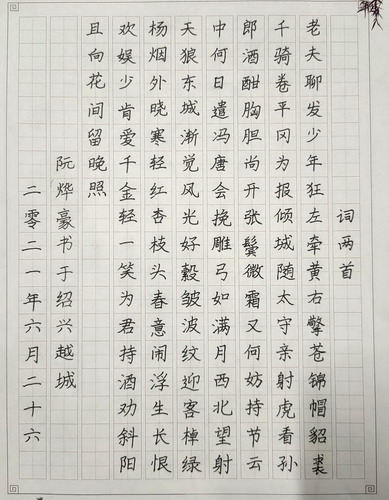 词两首
老夫聊发少年狂左牵黄右擎苍锦帽貂裘
千骑卷平冈为报倾城随太守亲射虎看孙
郎酒酣胸胆尚开张鬓微霜又何妨持节云
中何日遣冯唐会挽雕弓如满月西北望射
天狼东城渐觉风光好縠皱波纹迎客棹绿
杨烟外晓寒轻红杏枝头春意闹浮生长恨
欢娱少肯爱千金轻一笑为君持酒劝斜阳
且向花间留晚照
阮烨豪书于绍兴越城
二零二一年六月二十六